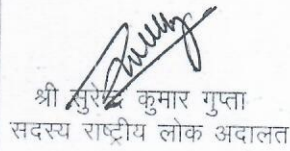 श्री सुरेन्द्र कुमार गुप्ता
सदस्य राष्ट्रीय लोक अदालत